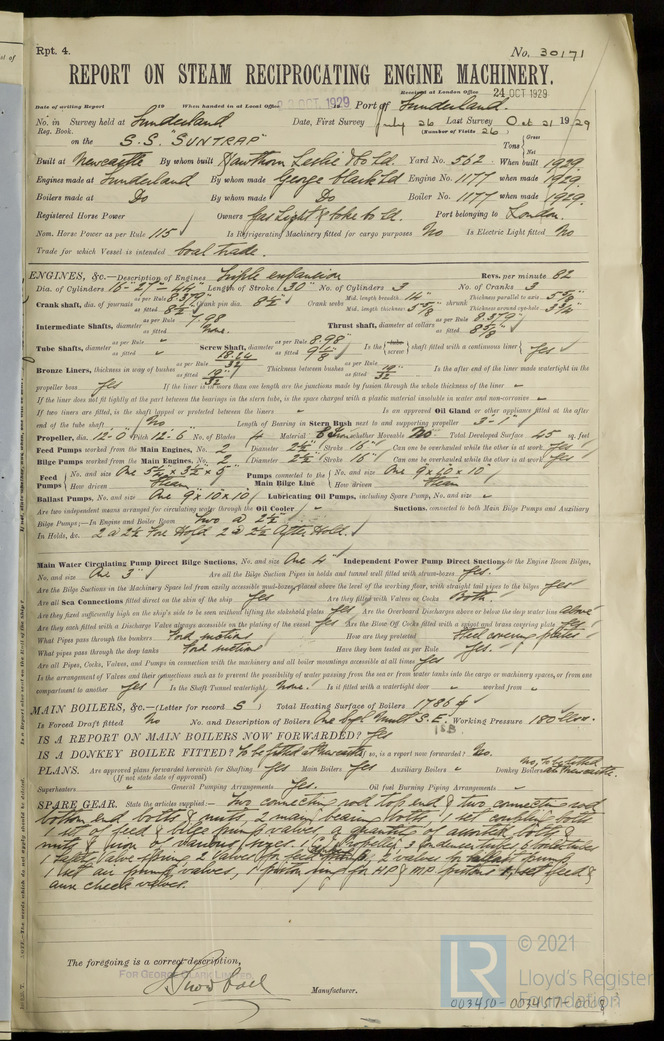 Rpt. 4.
No. 30171
REPORT ON STEAM RECIPROCATING ENGINE MACHINERY.
Received at London Office 24 OCT 1929
Date of writing Report 19 When handed in at Local Office OCT. 1929 Port of Sunderland.
No. in Survey held at Sunderland Date, First Survey July 26 Last Survey Oct 21 1929
Reg. Book. (Number of Visits 26)
on the S.S. "SUNTRAP" Tons Gross Net
Built at Newcastle By whom built Hawthorn Leslie & Co Ld. Yard No. 562 When built 1929.
Engines made at Sunderland By whom made George Clark Ld Engine No. 1177 when made 1929.
Boilers made at Do By whom made Do Boiler No. 1177 when made 1929.
Registered Horse Power Owners Gas Light & Coke Co Ld. Port belonging to London.
Nom. Horse Power as per Rule 115 Is Refrigerating Machinery fitted for cargo purposes No Is Electric Light fitted No
Trade for which Vessel is intended Coal trade.
ENGINES, &c.—Description of Engines Triple expansion Revs. per minute 82
Dia. of Cylinders 16"-27"-44" Length of Stroke 30" No. of Cylinders 3 No. of Cranks 3
Crank shaft, dia. of journals as per Rule 8.379" as fitted 8½" Crank pin dia. 8½" Crank webs Mid. length breadth 14" Mid. length thickness 5⅝" shrunk Thickness parallel to axis 5⅝" Thickness around eye-hole 3¾"
Intermediate Shafts, diameter as per Rule 7.98 as fitted none. Thrust shaft, diameter at collars as per Rule 8.379" as fitted 8⅝"
Tube Shafts, diameter as per Rule as fitted Screw Shaft, diameter as per Rule 8.98" as fitted Is the tube screw shaft fitted with a continuous liner Yes
Bronze Liners, thickness in way of bushes as per Rule as fitted Thickness between bushes as per Rule as fitted Is the after end of the liner made watertight in the
propeller boss Yes If the liner is in more than one length are the junctions made by fusion through the whole thickness of the liner "
If the liner does not fit tightly at the part between the bearings in the stern tube, is the space charged with a plastic material insoluble in water and non-corrosive "
If two liners are fitted, is the shaft lapped or protected between the liners " Is an approved Oil Gland or other appliance fitted at the after
end of the tube shaft No Length of Bearing in Stern Bush next to and supporting propeller 3'-1"
Propeller, dia. 12'-0" Pitch 12'-6" No. of Blades 4 Material C.Iron whether Moveable No Total Developed Surface 45 sq. feet
Feed Pumps worked from the Main Engines, No. 2 Diameter 2½" Stroke 16" Can one be overhauled while the other is at work Yes
Bilge Pumps worked from the Main Engines, No. 2 Diameter 2½" Stroke 16" Can one be overhauled while the other is at work Yes
Feed Pumps No. and size One 5½" x 3½" x 9" How driven Steam Pumps connected to the Main Bilge Line No. and size One 9 x 10 x 10 How driven Steam
Ballast Pumps, No. and size One 9 x 10 x 10 Lubricating Oil Pumps, including Spare Pump, No. and size "
Are two independent means arranged for circulating water through the Oil Cooler " Suctions, connected to both Main Bilge Pumps and Auxiliary
Bilge Pumps;—In Engine and Boiler Room Two @ 2½"
In Holds, &c. 2 @ 2½ Fore Hold 2 @ 2½ After Hold.
Main Water Circulating Pump Direct Bilge Suctions, No. and size One 4" Independent Power Pump Direct Suctions to the Engine Room Bilges,
No. and size One 3" Are all the Bilge Suction Pipes in holds and tunnel well fitted with strum-boxes Yes.
Are the Bilge Suctions in the Machinery Space led from easily accessible mud-boxes, placed above the level of the working floor, with straight tail pipes to the bilges Yes
Are all Sea Connections fitted direct on the skin of the ship Yes Are they fitted with Valves or Cocks Both
Are they fixed sufficiently high on the ship's side to be seen without lifting the stokehold plates Yes Are the Overboard Discharges above or below the deep water line above
Are they each fitted with a Discharge Valve always accessible on the plating of the vessel Yes Are the Blow-Off Cocks fitted with a spigot and brass covering plate Yes
What Pipes pass through the bunkers Ford suctions How are they protected Steel covering plates
What pipes pass through the deep tanks Ford suctions Have they been tested as per Rule Yes.
Are all Pipes, Cocks, Valves, and Pumps in connection with the machinery and all boiler mountings accessible at all times Yes
Is the arrangement of Valves and their connections such as to prevent the possibility of water passing from the sea or from water tanks into the cargo or machinery spaces, or from one
compartment to another Yes Is the Shaft Tunnel watertight None. Is it fitted with a watertight door " worked from "
MAIN BOILERS, &c.—(Letter for record S) Total Heating Surface of Boilers 1786 ϕ
Is Forced Draft fitted No No. and Description of Boilers One Cyl. Mult. S.E. 1SB Working Pressure 180 lbs.
IS A REPORT ON MAIN BOILERS NOW FORWARDED? Yes
IS A DONKEY BOILER FITTED? To be fitted at Newcastle If so, is a report now forwarded? No.
PLANS. Are approved plans forwarded herewith for Shafting Yes Main Boilers Yes Auxiliary Boilers " Donkey Boilers No, To be fitted at Newcastle.
(If not state date of approval)
Superheaters " General Pumping Arrangements Yes. Oil fuel Burning Piping Arrangements "
SPARE GEAR. State the articles supplied:— Two connecting rod top end & two connecting rod
bottom end bolts & nuts, 2 main bearing bolts, 1 set coupling bolts
1 set of feed & bilge pump valves, a quantity of assorted bolts &
nuts & iron of various sizes. 1 propeller, 3 condenser tubes, 6 boiler tubes
1 safety valve spring, 2 valves for feed pumps, 2 valves for ballast pump
1 set air pump valves, 1 piston ring for HP & MP pistons, 1 set feed &
aux check valves.
The foregoing is a correct description,
FOR GEORGE CLARK LIMITED
Manufacturer.
LR © 2021
Lloyd's Register
Foundation
003450-003457-0008